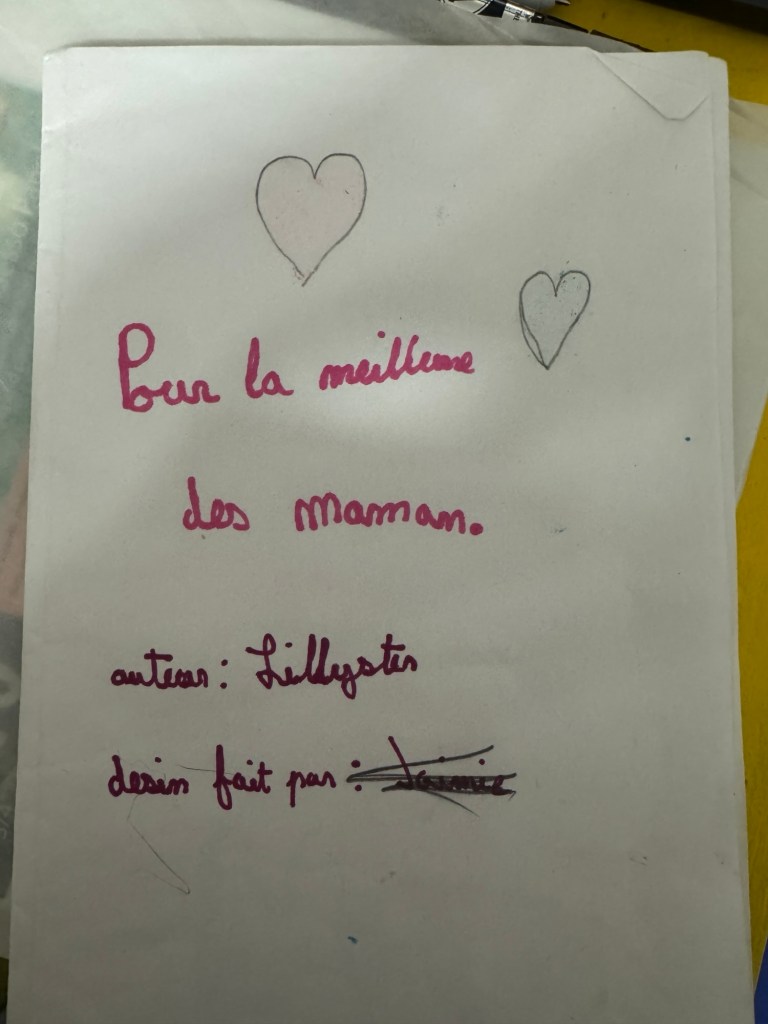 Pour la meilleure
des maman.
auteur : Lillyster
desin fait par :